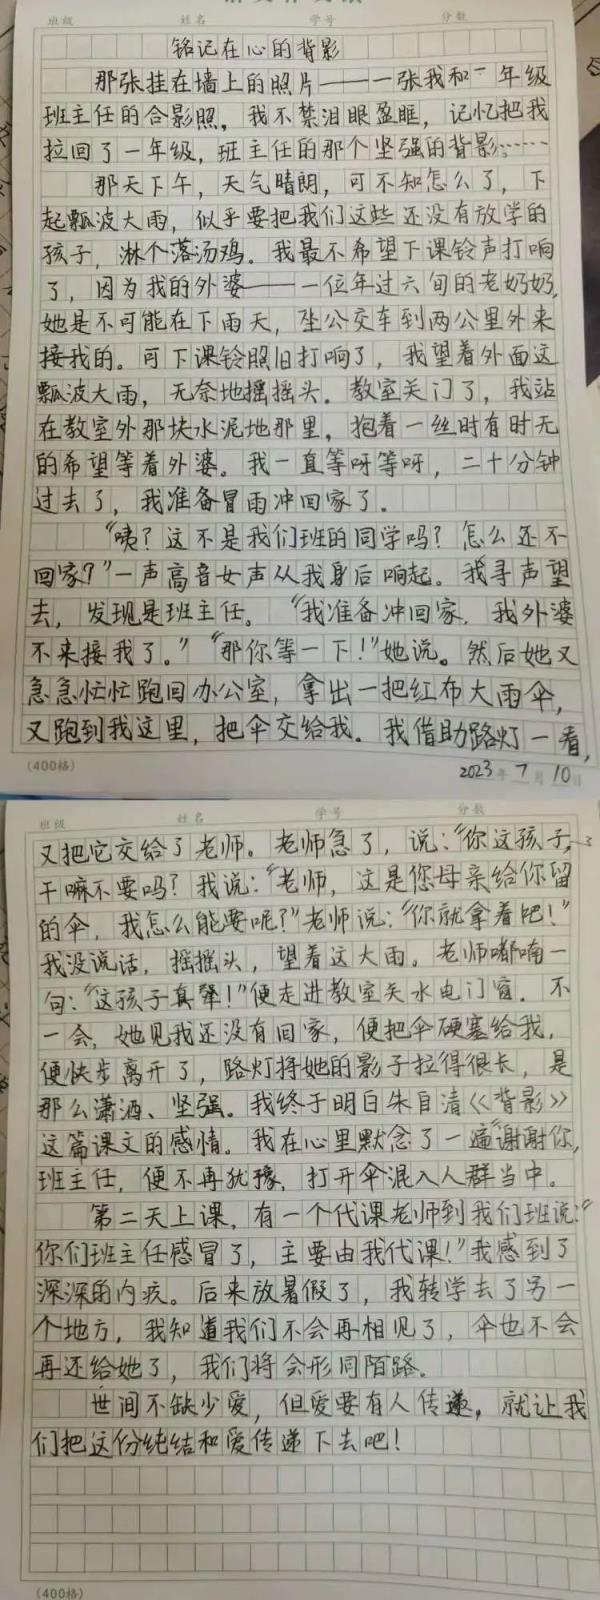 班级 姓名 学号 分数
铭记在心的背影
那张挂在墙上的照片——一张我和一年级
班主任的合影照，我不禁泪眼盈眶，记忆把我
拉回了一年级，班主任的那个坚强的背影……
那天下午，天气晴朗，可不知怎么了，下
起瓢波大雨，似乎要把我们这些还没有放学的
孩子，淋个落汤鸡。我最不希望下课铃声打响
了，因为我的外婆——一位年过六旬的老奶奶，
她是不可能在下雨天，坐公交车到两公里外来
接我的。可下课铃照旧打响了，我望着外面这
瓢波大雨，无奈地摇摇头。教室关门了，我站
在教室外那块水泥地那里，抱着一丝时有时无
的希望等着外婆。我一直等呀等呀，二十分钟
过去了，我准备冒雨冲回家了。
“咦？这不是我们班的同学吗？怎么还不
回家？”一声高音女声从我身后响起。我寻声望
去，发现是班主任。“我准备冲回家，我外婆
不来接我了。”“那你等一下！”她说。然后她又
急急忙忙跑回办公室，拿出一把红布大雨伞，
又跑到我这里，把伞交给我。我借助路灯一看，
(400格)
2023年7月10日
班级 姓名 学号 分数
又把它交给了老师。老师急了，说：“你这孩子，
干嘛不要吗？我说：“老师，这是您母亲给你留
的伞，我怎么能要呢？”老师说：“你就拿着吧！”
我没说话，摇摇头，望着这大雨。老师嘟喃一
句：“这孩子真犟！”便走进教室关水电门窗。不
一会，她见我还没有回家，便把伞硬塞给我，
便快步离开了，路灯将她的影子拉得很长，是
那么潇洒、坚强。我终于明白朱自清《背影》
这篇课文的感情。我在心里默念了一遍“谢谢你，
班主任，便不再犹豫，打开伞混入人群当中。
第二天上课，有一个代课老师到我们班说：“
你们班主任感冒了，主要由我代课！”我感到了
深深的内疚。后来放暑假了，我转学去了另一
个地方，我知道我们不会再相见了，伞也不会
再还给她了，我们将会形同陌路。
世间不缺少爱，但爱要有人传递，就让我
们把这份纯结和爱传递下去吧！
(400格)